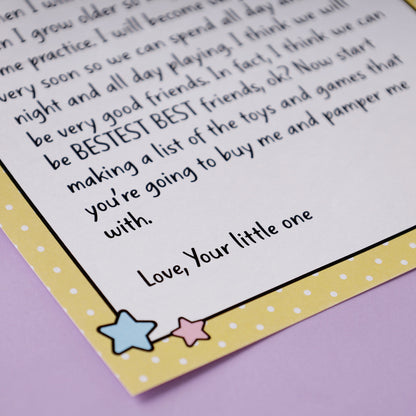 n I grow older so
me practice. I will become
very soon so we can spend all day and
night and all day playing. I think we will
be very good friends. In fact, I think we can
be BESTEST BEST friends, ok? Now start
making a list of the toys and games that
you're going to buy me and pamper me
with.
Love, Your little one